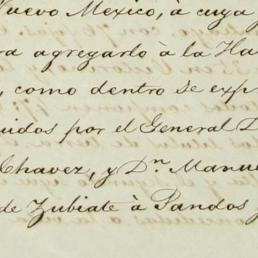 Nuevo Mexico, à cuya
agregarlo à la Ha
, como dentro se exp
uidos por el General D
Chavez, y Dn. Manue
de Zubiate à Pandos